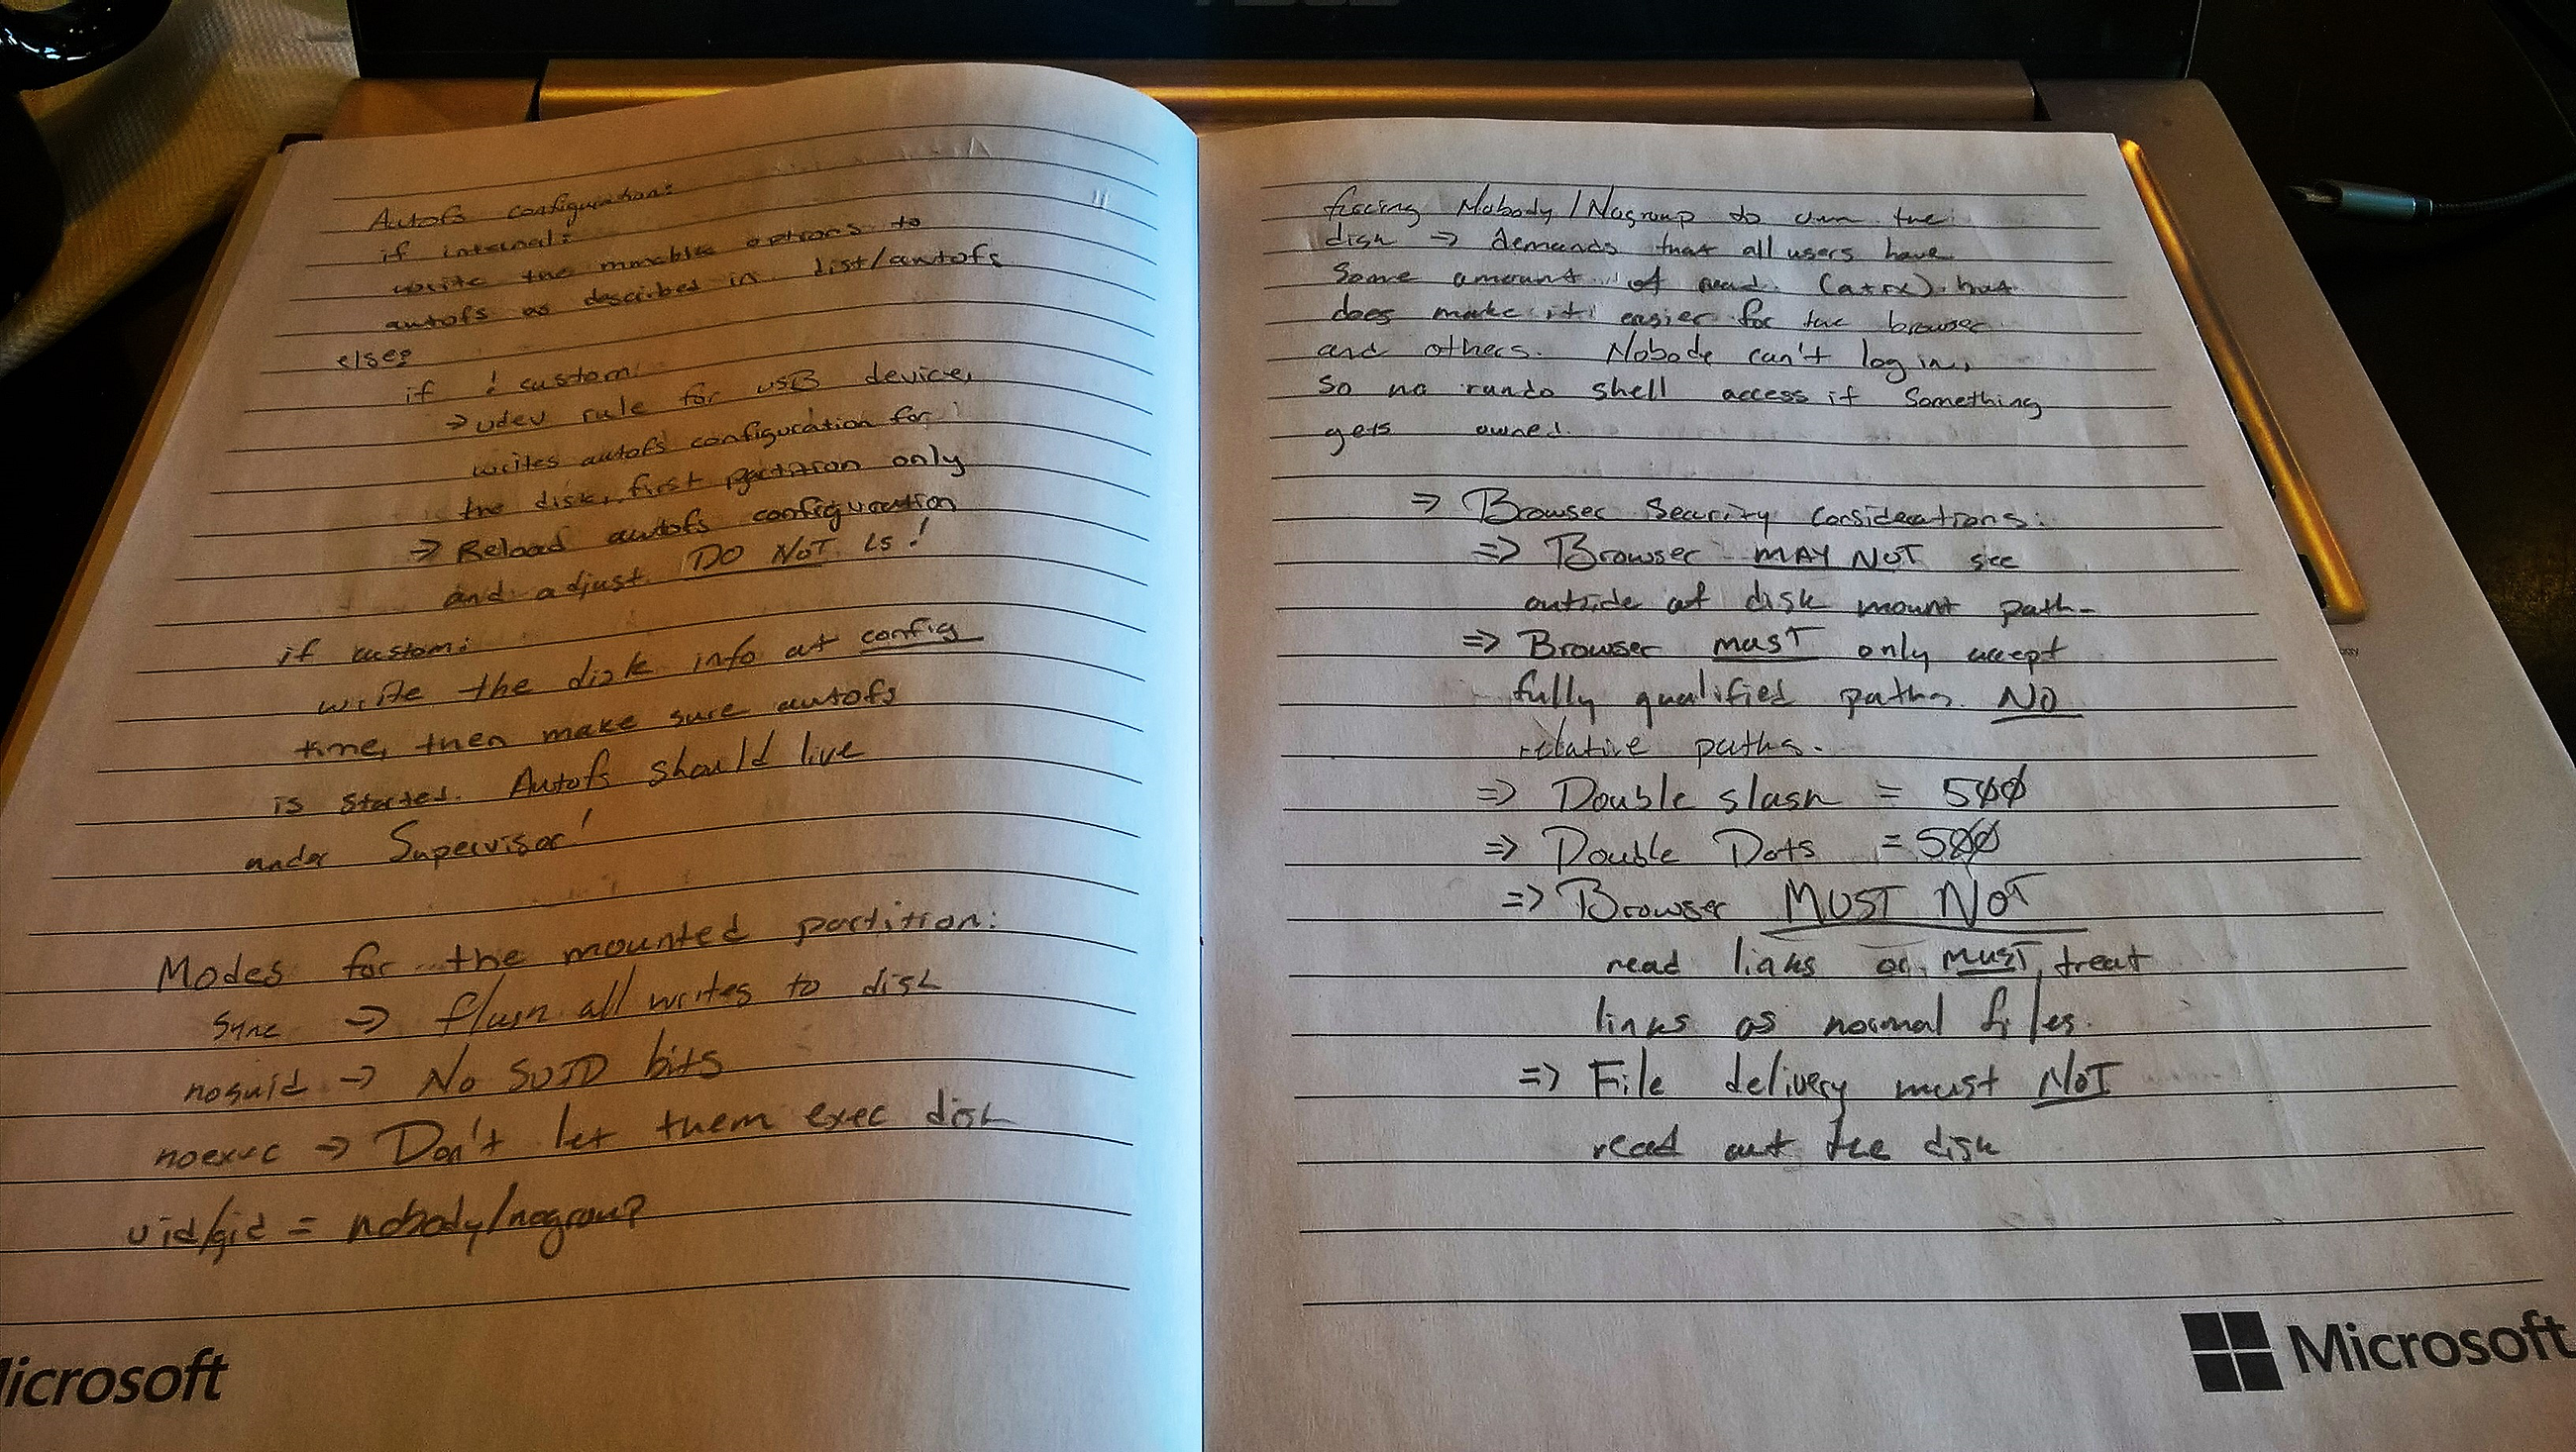 Autofs configuration:
if internal:
write the options to
autofs as described in dist/autofs
else:
if ! custom:
=> udev rule for USB device,
writes autofs configuration for
the disk, first partition only
=> Reload autofs configuration
and adjust. DO NOT ls!
if custom:
write the disk info at config
time, then make sure autofs
is started. Autofs should live
under Supervisor!
Modes for the mounted partition:
sync => flush all writes to disk
nosuid => No SUID bits
noexec => Don't let them exec disk
uid/gid = nobody/nogroup
Microsoft
forcing Nobody/Nogroup to own the
disk => demands that all users have
some amount of read (a+rx) but
does make it easier for the browser
and others. Nobody can't log in,
so no rando shell access if something
gets owned.
=> Browser Security Considerations:
=> Browser MAY NOT see
outside of disk mount path.
=> Browser must only accept
fully qualified paths. NO
relative paths.
=> Double slash = 500
=> Double Dots = 500
=> Browser MUST NOT
read links or MUST treat
links as normal files.
=> File delivery must NOT
read out the disk
Microsoft